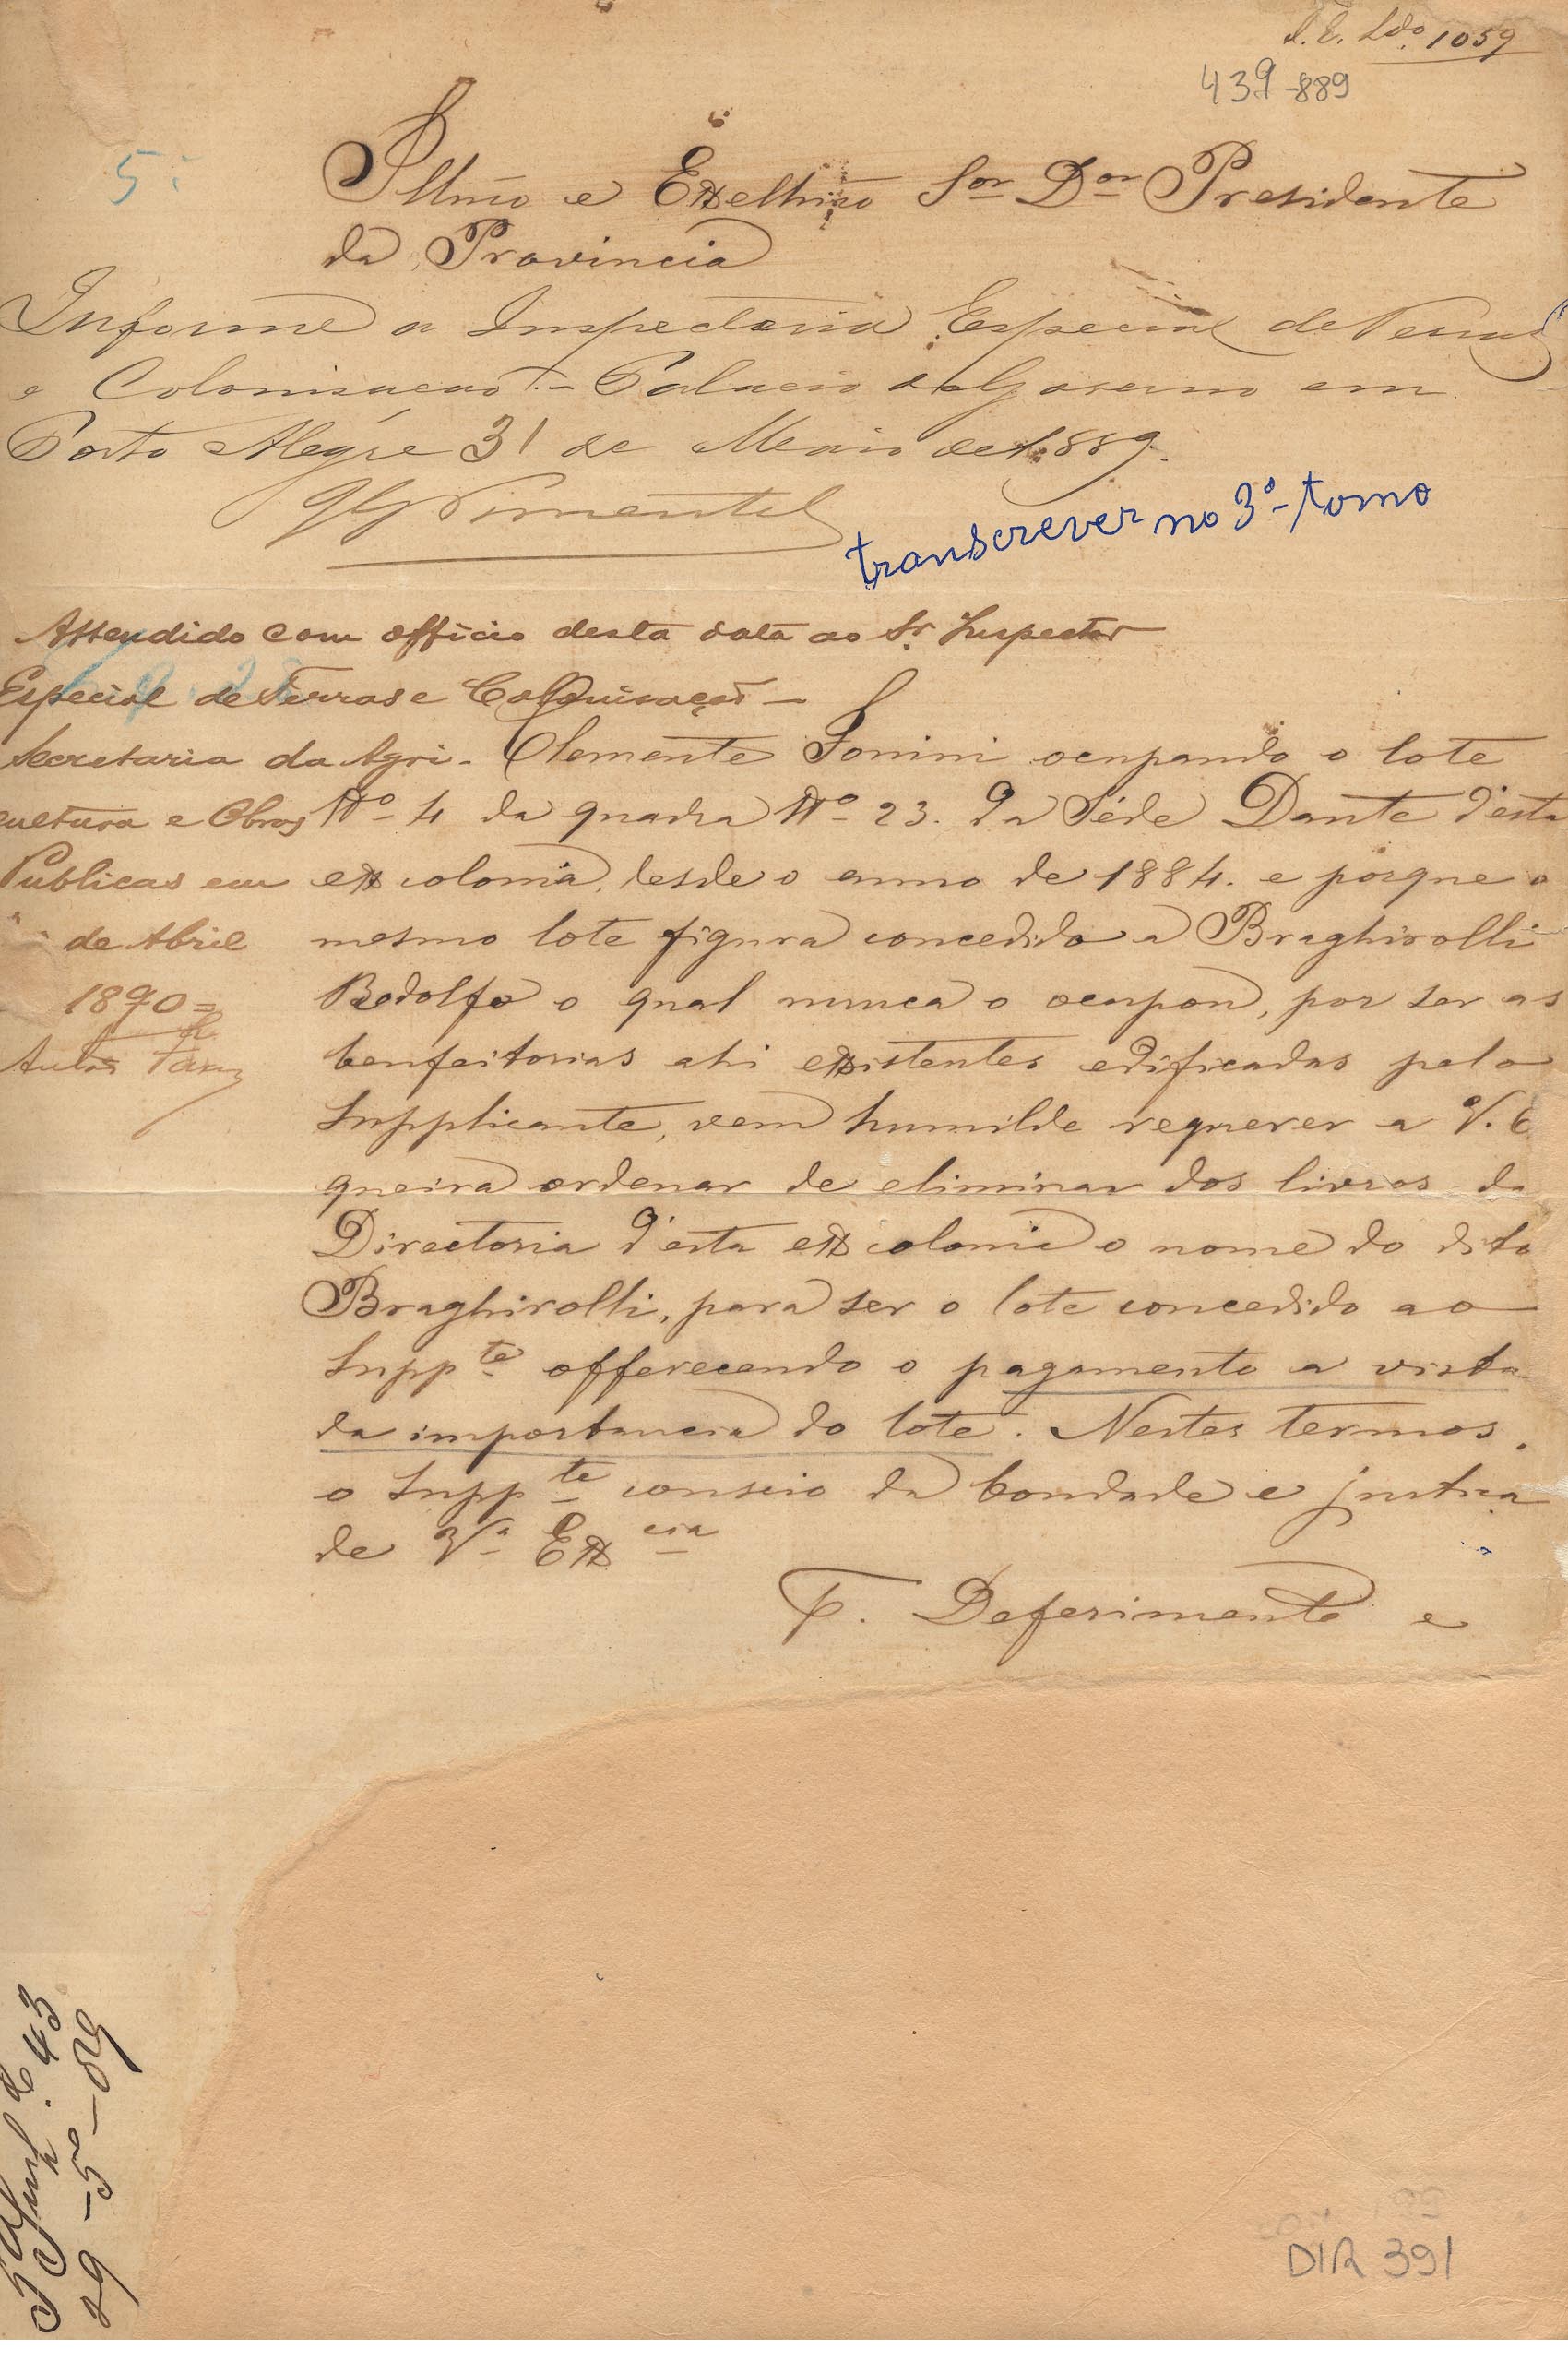 1059
439-889
5
Illmo e Exellmo Sor Dor Presidente
da Provincia
Informe a Inspectoria Especial de Terras
e Colonisacao.- Palacio do Governo em
Porto Alegre 31 de Maio de 1.889.
Pimentel
transcrever no 3º- tomo
Attendido com officio desta data ao Sr. Inspector
Especial de Terras e Colonisação -
Secretaria da Agri-
cultura e Obras
Publicas em
de Abril
1890 =
Clemente Fonini ocupando o lote
Nº 4 da quadra Nº 23. da Séde Dante d'esta
ex colonia, desde o anno de 1884. e porque o
mesmo lote figura concedido a Braghirolli
Rodolfo o qual nunca o ocupou, por ser as
benfeitorias ahi existentes edificadas pelo
Supplicante, vem humilde requerer a V. E
queira ordenar de eliminar dos livros da
Directoria d'esta ex colonia o nome do dito
Braghirolli, para ser o lote concedido ao
Suppte offerecendo o pagamento a vista
da importancia do lote. Nestes termos.
o Suppte conscio da bondade e justiça
de Va Excia
P. Deferimento e
43
29-5-89
DIR 391